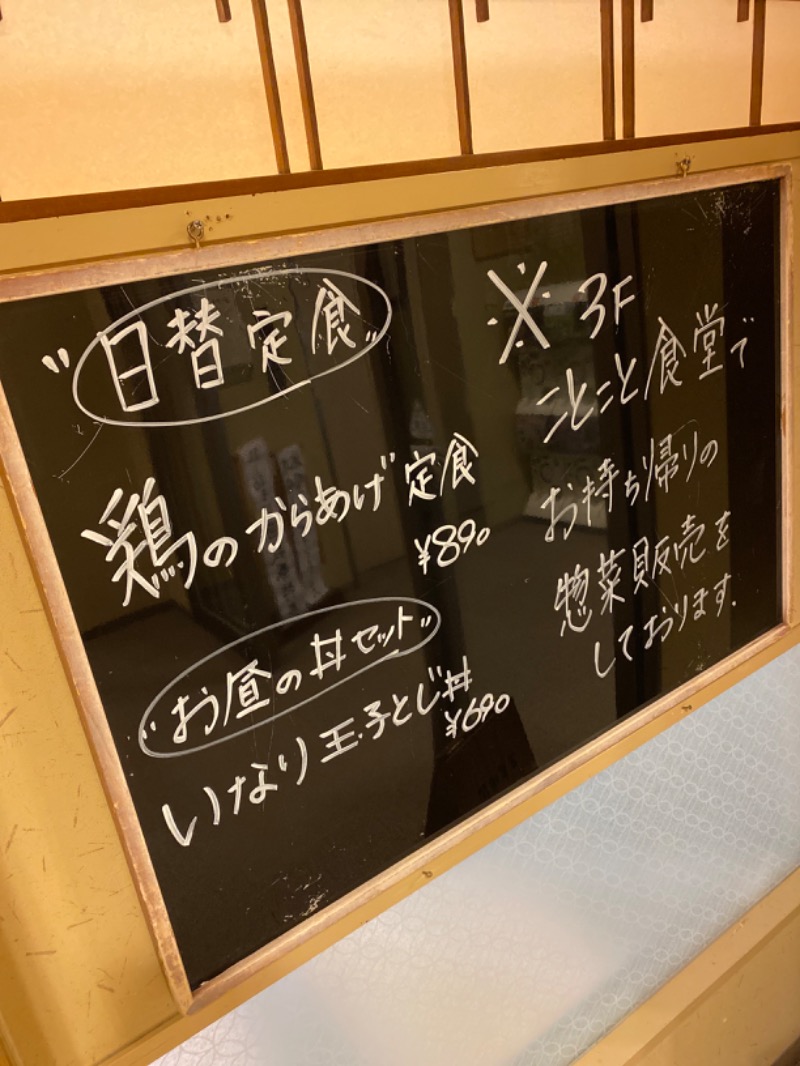 "日替定食"
鶏のからあげ定食
¥890
"お昼の丼セット"
いなり玉子とじ丼
¥690
※ 3F
ことこと食堂で
お持ち帰りの
惣菜販売を
しております.